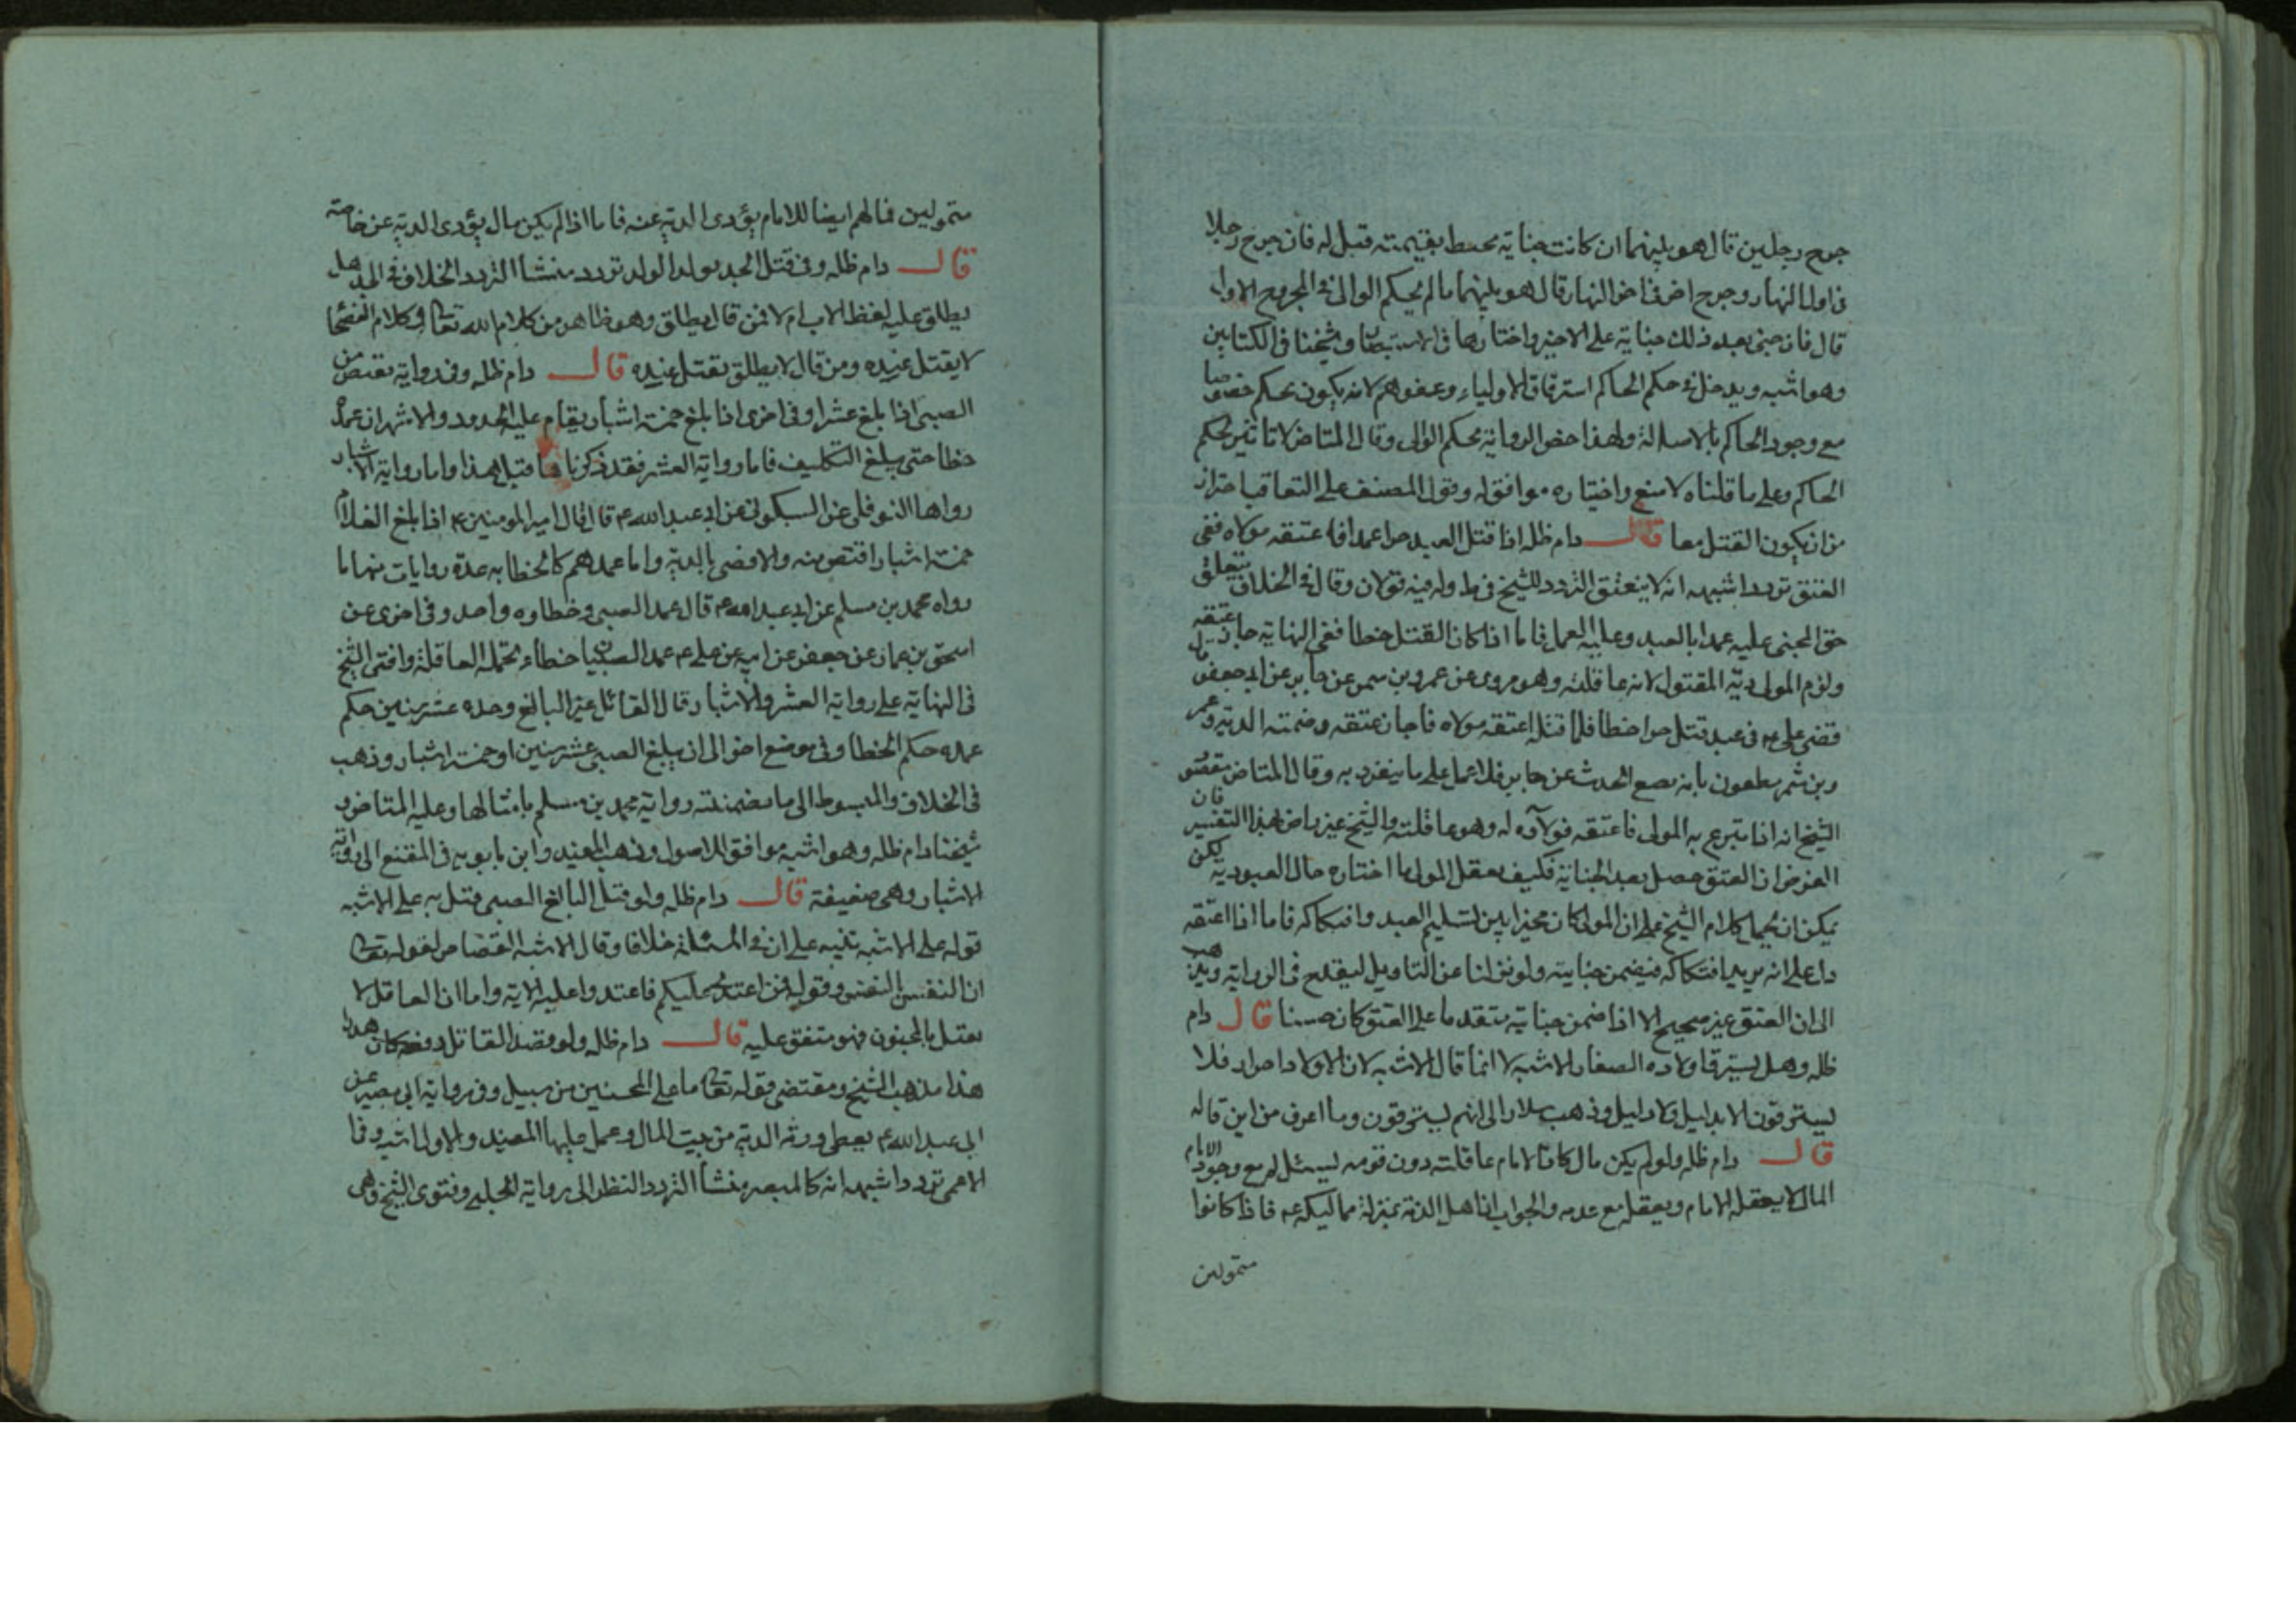 جرح رجلين قال هو بينهما ان كانت جنايته محيط بقيمته قيل له فان جرح رجلا
في اول النهار وجرح اخر في اخر النهار قال هو بينهما ما لم يحكم الوالي في المجروح الاول
قال فان جنى بعد ذلك جناية على الاخير واختارها في الاستبصار وشيخنا في الكتابين
وهو اشبه ويدخل في حكم الحاكم استرقاق الاولياء وعفوهم لانه يكون بحكم خصوصا
مع وجود الحاكم بالاسالة ولهذا خص الرواية بحكم الوالي وقال المتاخر لا تاثير لحكم
الحاكم وعلى ما قلناه لا منع واختياره موافق له وقول المصنف على التعاقب احتراز
من ان يكون القتل معا قال دام ظله اذا قتل العبد حرا عمدا فاعتقه مولاه ففي
العتق تردد اشبهه انه لا ينعتق التردد للشيخ في ط وله فيه قولان وقال في الخلاف يتعلق
حق المجنى عليه عمدا بالعبد وعليه العمل فاما اذا كان القتل خطا ففي النهاية جاز عتقه
ولزم المولى دية المقتول لانه عاقلته وهو مروي عن عمرو بن سمر عن جابر عن ابي جعفر
قضى علي ع في عبد قتل حرا خطا فلما قتله اعتقه مولاه فاجاز عتقه وضمنه الدية وعمر
وبن شمر مطعون بانه يضع الحدث عن جابر فلا عمل على ما ينفرد به وقال المتاخر مقصود
الشيخ انه اذا تبرع به المولى فاعتقه فولآؤه له وهو عاقلته والشيخ غير راض بهذا التفسير فان
الغرض ان العتق حصل بعد الجناية فكيف يعقل المولى ما اختاره حال العبودية لكن
يمكن ان يحمل كلام الشيخ على ان المولى كان مخيرا بين تسليم العبد وافتكاكه فاما اذا اعتقه
دا على انه يريد افتكاكه فيضمن جنايته ولو نزلنا عن التاويل ليقدح في الرواية ويذهب
الى ان العتق غير صحيح الا اذا ضمن جنايته متقدما على العتق كان حسنا قال دام
ظله وهل يسترق اولاده الصغار الاشبه لا انما قال الاشبه لان الاولاد احرار فلا
يسترقون الا بدليل ولا دليل وذهب سلار الى انهم يسترقون وما اعرف من اين قاله
قال دام ظله ولو لم يكن مال كان الامام عاقلته دون قومه ليسئل لم مع وجود
المال لا يعقله الامام ويعقله مع عدمه والجواب ان اهل الذمة بمنزلة مماليكه ع فاذا كانوا
متمولين
متمولين فمالهم ايضا للامام يؤدى الدية عنه فاما اذا لم يكن مال يؤدى الدية عن خاصته
قال دام ظله وفي قتل الجد بولد الولد تردد منشا التردد الخلاف في الجد هل
يطلق عليه لفظ الاب ام لا فمن قال يطلق وهو ظاهر من كلام الله تعا وكلام الفصحا
لا يقتل عنده ومن قال لا يطلق يقتل عنده قال دام ظله وفي رواية يقتص من
الصبى اذا بلغ عشرا وفي اخرى اذا بلغ خمسة اشبار يقام عليه الحدود والاشهر ان عمده
خطا حتى يبلغ التكليف فاما رواية العشر فقد ذكرناها قبل هذا واما رواية الاشبار
رواها النوفلي عن السكوني عن ابي عبد الله ع قال قال امير المومنين ع اذا بلغ الغلام
خمسة اشبار اقتص منه والا قضى بالدية واما عمدهم كالخطا به عدة روايات منها ما
رواه محمد بن مسلم عن ابي عبد الله ع قال عمد الصبى وخطاوه واحد وفي اخرى عن
اسحق بن عمار عن جعفر عن ابيه عن علي ع عمد الصبيان خطاء تحمله العاقلة وافتى الشيخ
في النهاية على رواية العشر والاشبار وقال القاتل غير البالغ وحده عشر سنين حكم
عمده حكم الخطا وفي موضع اخر الى ان يبلغ الصبى عشر سنين او خمسة اشبار وذهب
في الخلاف والمبسوط الى ما تضمنته رواية محمد بن مسلم بامثالها وعليه المتاخر و
شيخنا دام ظله وهو اشبه موافق للاصول وذهب المفيد وابن بابويه في المقنع الى رواية
الاشبار وهى ضعيفة قال دام ظله ولو قتل البالغ الصبى قتل به على الاشبه
قوله على الاشبه تنبيه على ان في المسئلة خلافا وقال الاشبه القصاص لقوله تعا
ان النفس بالنفس وقوله فمن اعتدى عليكم فاعتدوا عليه الاية واما ان العاقل لا
يقتل بالمجنون فهو متفق عليه قال دام ظله ولو قصد القاتل دفعه كان هدرا
هذا مذهب الشيخ ومقتضى قوله تعا ما على المحسنين من سبيل وفي رواية ابى بصير عن
ابى عبد الله ع يعطى ورثه الدية من بيت المال وعمل عليها المفيد والاول اشبه وفي
الاعمى تردد اشبهه انه كالمبصر منشأ التردد النظر الى رواية الحلبي وفتوى الشيخ وهى